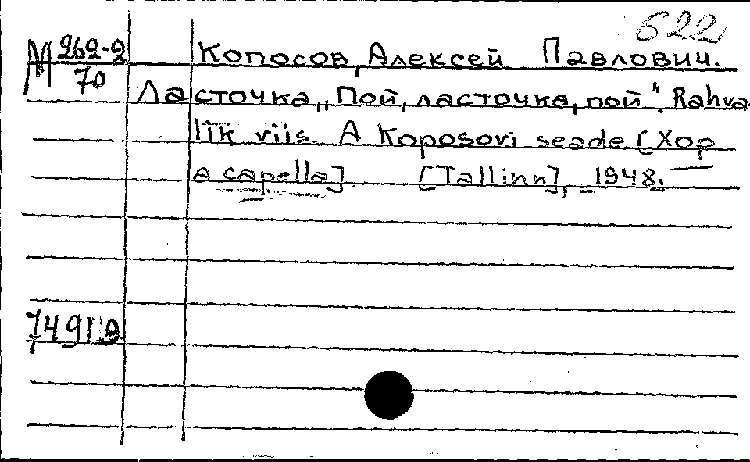 622
М 262-2/70 Копосов, Алексей Павлович.
Ласточка „Пой, ласточка, пой“. Rahva-
lik viis. A Koposovi seade [Хор
a capella] [Tallinn], 1948.
74919